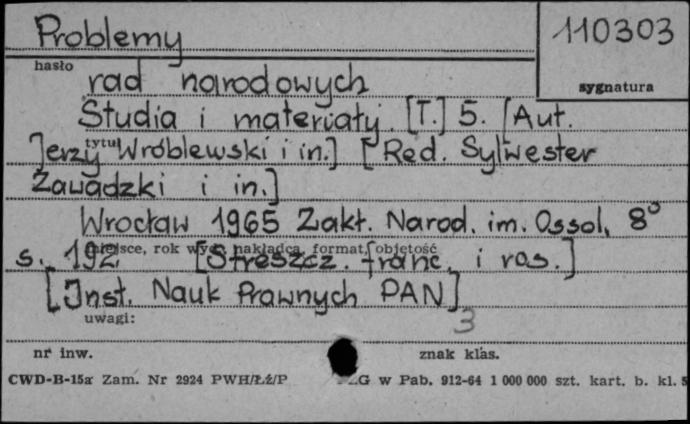 Problemy
110303
hasło
sygnatura
rad narodowych
Studia i materiały. [T.] 5. [Aut.
tytuł
Jerzy Wróblewski i in.] [Red. Sylwester
Zawadzki i in.]
Wrocław 1965 Zakł. Narod. im. Ossol. 8°
miejsce, rok wyd., nakładca, format, objętość
s. 192 [Streszcz. franc. i ros.]
[Inst. Nauk Prawnych PAN]
uwagi:
3
nr inw.
znak klas.
CWD-B-15a Zam. Nr 2924 PWH/Łż/P
G w Pab. 912-64 1 000 000 szt. kart. b. kl. 5